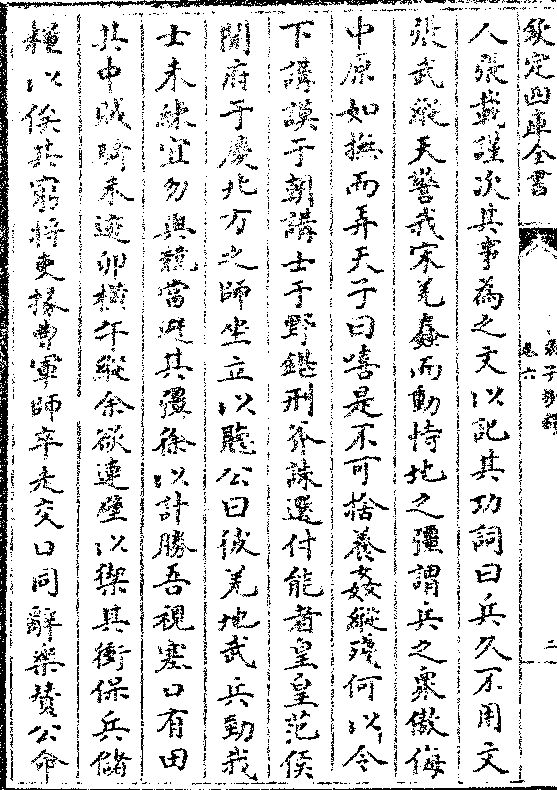 欽定四庫全書
張子抄釋
卷六
二
人張載謹次其事為之文以記其功詞曰兵久不用文
張武縱天警我宋羌蠢而動恃地之彊謂兵之衆傲侮
中原如撫而弄天子曰嘻是不可捨養姦縱殘何以令
下講謨于朝講士于野鍖刑斧誅選付能者皇皇范侯
開府于慶北方之師坐立以聽公曰彼羌地武兵勁我
士未練宜勿與競當避其彊徐以計勝吾視塞口有田
其中賊騎未迹卯橫午縱余欲連壁以禦其衝保兵儲
糧以俟其窮將吏掾曹軍師卒走交口同辭樂贊公命